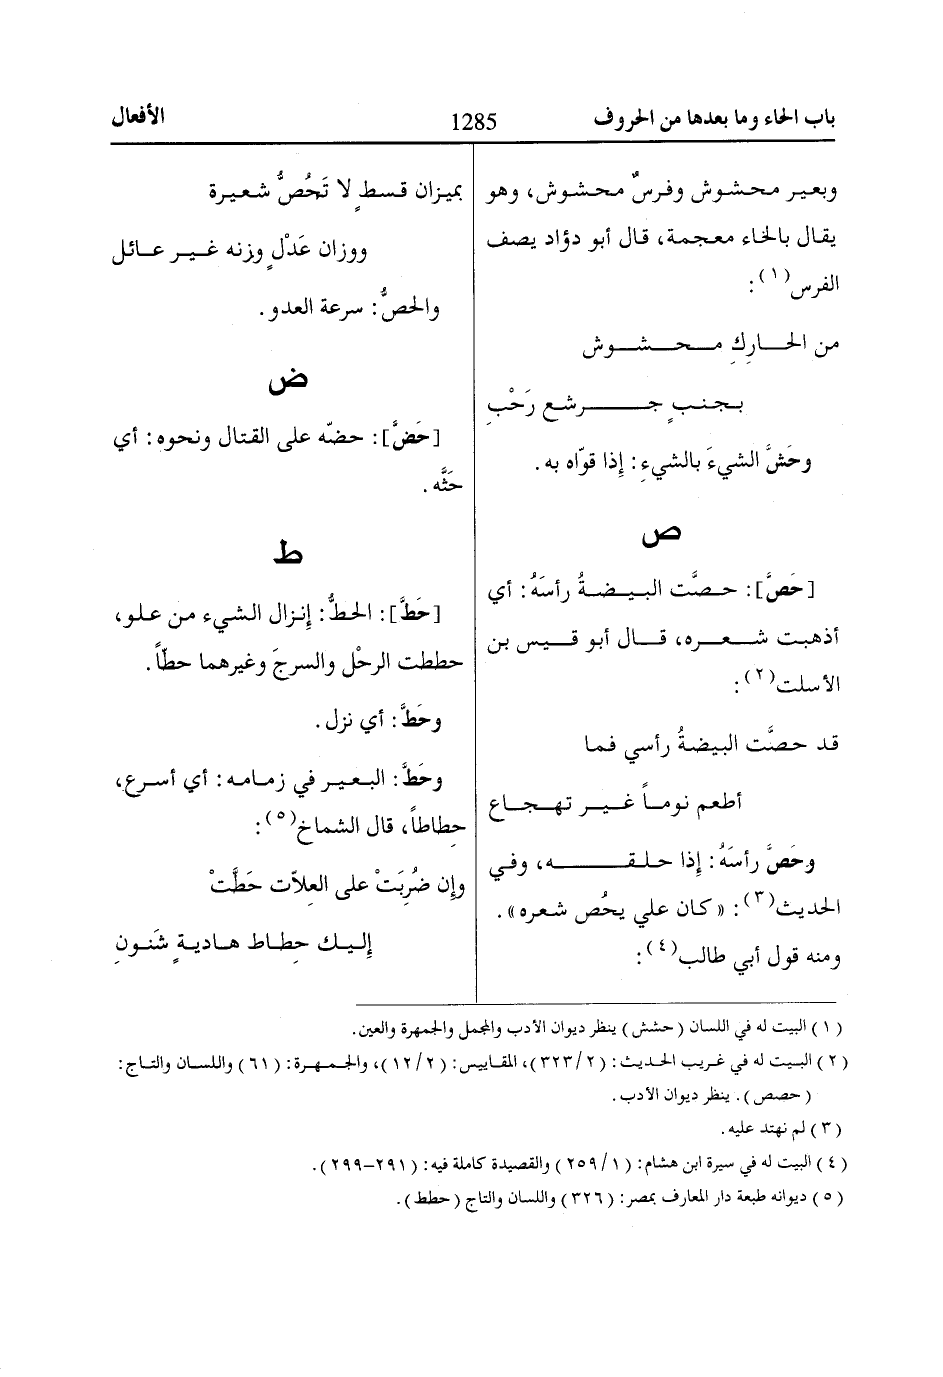 باب الحاء وما بعدها من الحروف 1285 الأفعال
وبعير محشوش وفرسٌ محشوش، وهو
يقال بالخاء معجمة، قال أبو دؤاد يصف
الفرس(١):
من الحارِكِ محشوش
بجنبٍ جرشع رَحْبِ
وحَشَّ الشيءَ بالشيءِ: إذا قوّاه به.
ص
[حَصَّ]: حصَّت البيضةُ رأسَهُ: أي
أذهبت شعره، قال أبو قيس بن
الأسلت(٢):
قد حصَّت البيضةُ رأسي فما
أطعم نوماً غير تهجاع
وحَصَّ رأسَهُ: إذا حلقه، وفي
الحديث(٣): «كان علي يحُص شعره».
ومنه قول أبي طالب(٤):
بميزان قسطٍ لا تَحُصُّ شعيرة
ووزان عَدْلٍ وزنه غير عائل
والحصُّ: سرعة العدو.
ض
[حَضَّ]: حضّه على القتال ونحوه: أي
حَثَّه.
ط
[حَطَّ]: الحطُّ: إنزال الشيء من علو،
حططت الرحْل والسرجَ وغيرهما حطّاً.
وحَطَّ: أي نزل.
وحَطَّ: البعير في زمامه: أي أسرع،
حِطاطاً، قال الشماخ(٥):
وإن ضُرِبَتْ على العلاّت حَطَّتْ
إليك حِطاط هاديةٍ شَنونِ
(١) البيت له في اللسان (حشش) ينظر ديوان الأدب والمجمل والجمهرة والعين.
(٢) البيت له في غريب الحديث: (٣٢٣/٢)، المقاييس: (١٢/٢)، والجمهرة: (٦١) واللسان والتاج:
(حصص). ينظر ديوان الأدب.
(٣) لم نهتد عليه.
(٤) البيت له في سيرة ابن هشام: (٢٥٩/١) والقصيدة كاملة فيه: (٢٩١-٢٩٩).
(٥) ديوانه طبعة دار المعارف بمصر: (٣٢٦) واللسان والتاج (حطط).